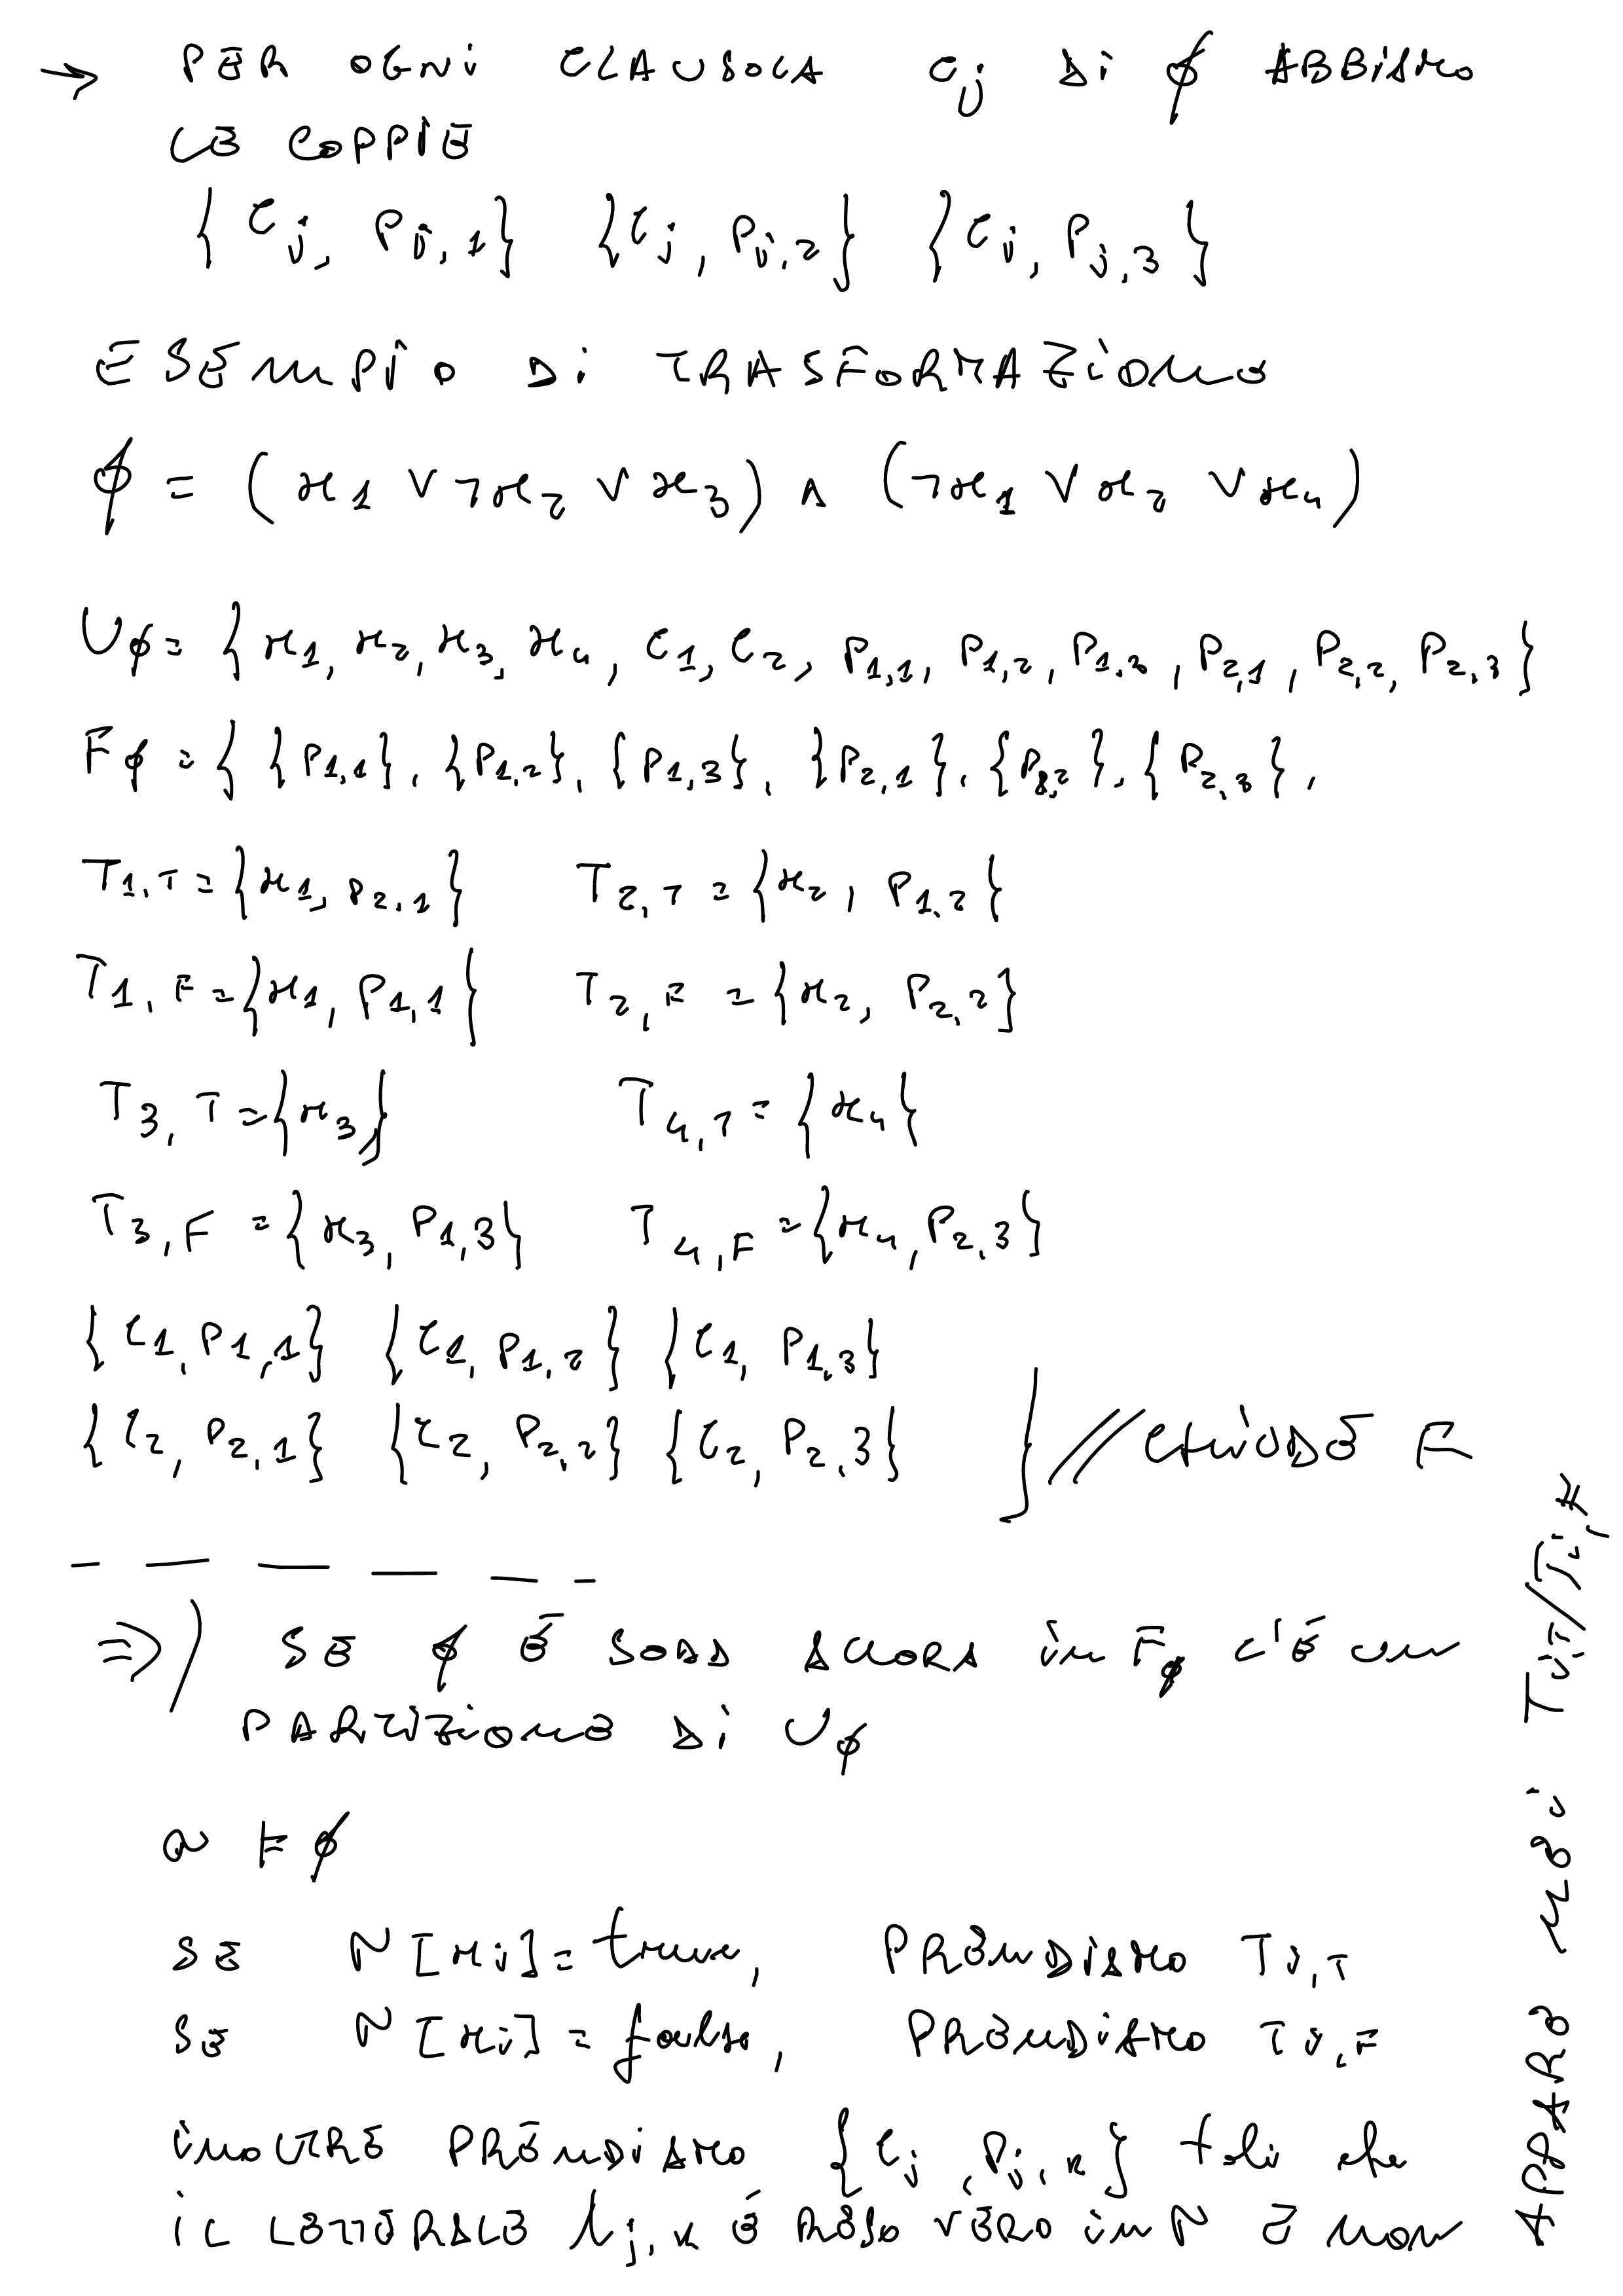 → PER OGNI CLAUSOLA Cj DI ϕ ABBIAMO
LE COPPIE
{Cj, Pj,1} {Cj, Pj,2} {Cj, Pj,3}
ESEMPIO DI TRASFORMAZIONE
ϕ = (x1 ∨ ¬x2 ∨ x3) ∧ (¬x1 ∨ x2 ∨ x4)
Uϕ = {x1, x2, x3, x4, C1, C2, P1,1, P1,2, P1,3, P2,1, P2,2, P2,3}
Fϕ = { {P1,1}, {P1,2}, {P1,3}, {P2,1}, {P2,2}, {P2,3},
T1,T = {x1, P2,1} T2,T = {x2, P1,2}
T1,F = {x1, P1,1} T2,F = {x2, P2,2}
T3,T = {x3} T4,T = {x4}
T3,F = {x3, P1,3} T4,F = {x4, P2,3}
{C1, P1,1} {C1, P1,2} {C1, P1,3}
{C2, P2,1} {C2, P2,2} {C2, P2,3} } // CHIUDE F
⇒) SE ϕ È SODD ALLORA in Fϕ c'È un
PARTIZIONE DI Uϕ
N ⊨ ϕ
SE N[xi] = true, PRENDIAMO Ti,T
SE N[xi] = false, PRENDIAMO Ti,F
inoLTRE PRENDIAMO {Cj, Pj,k} tali che
iL LETTERALE λj,k È RESO VERO in N E non
APPARE NEI Ti,T/Ti,F